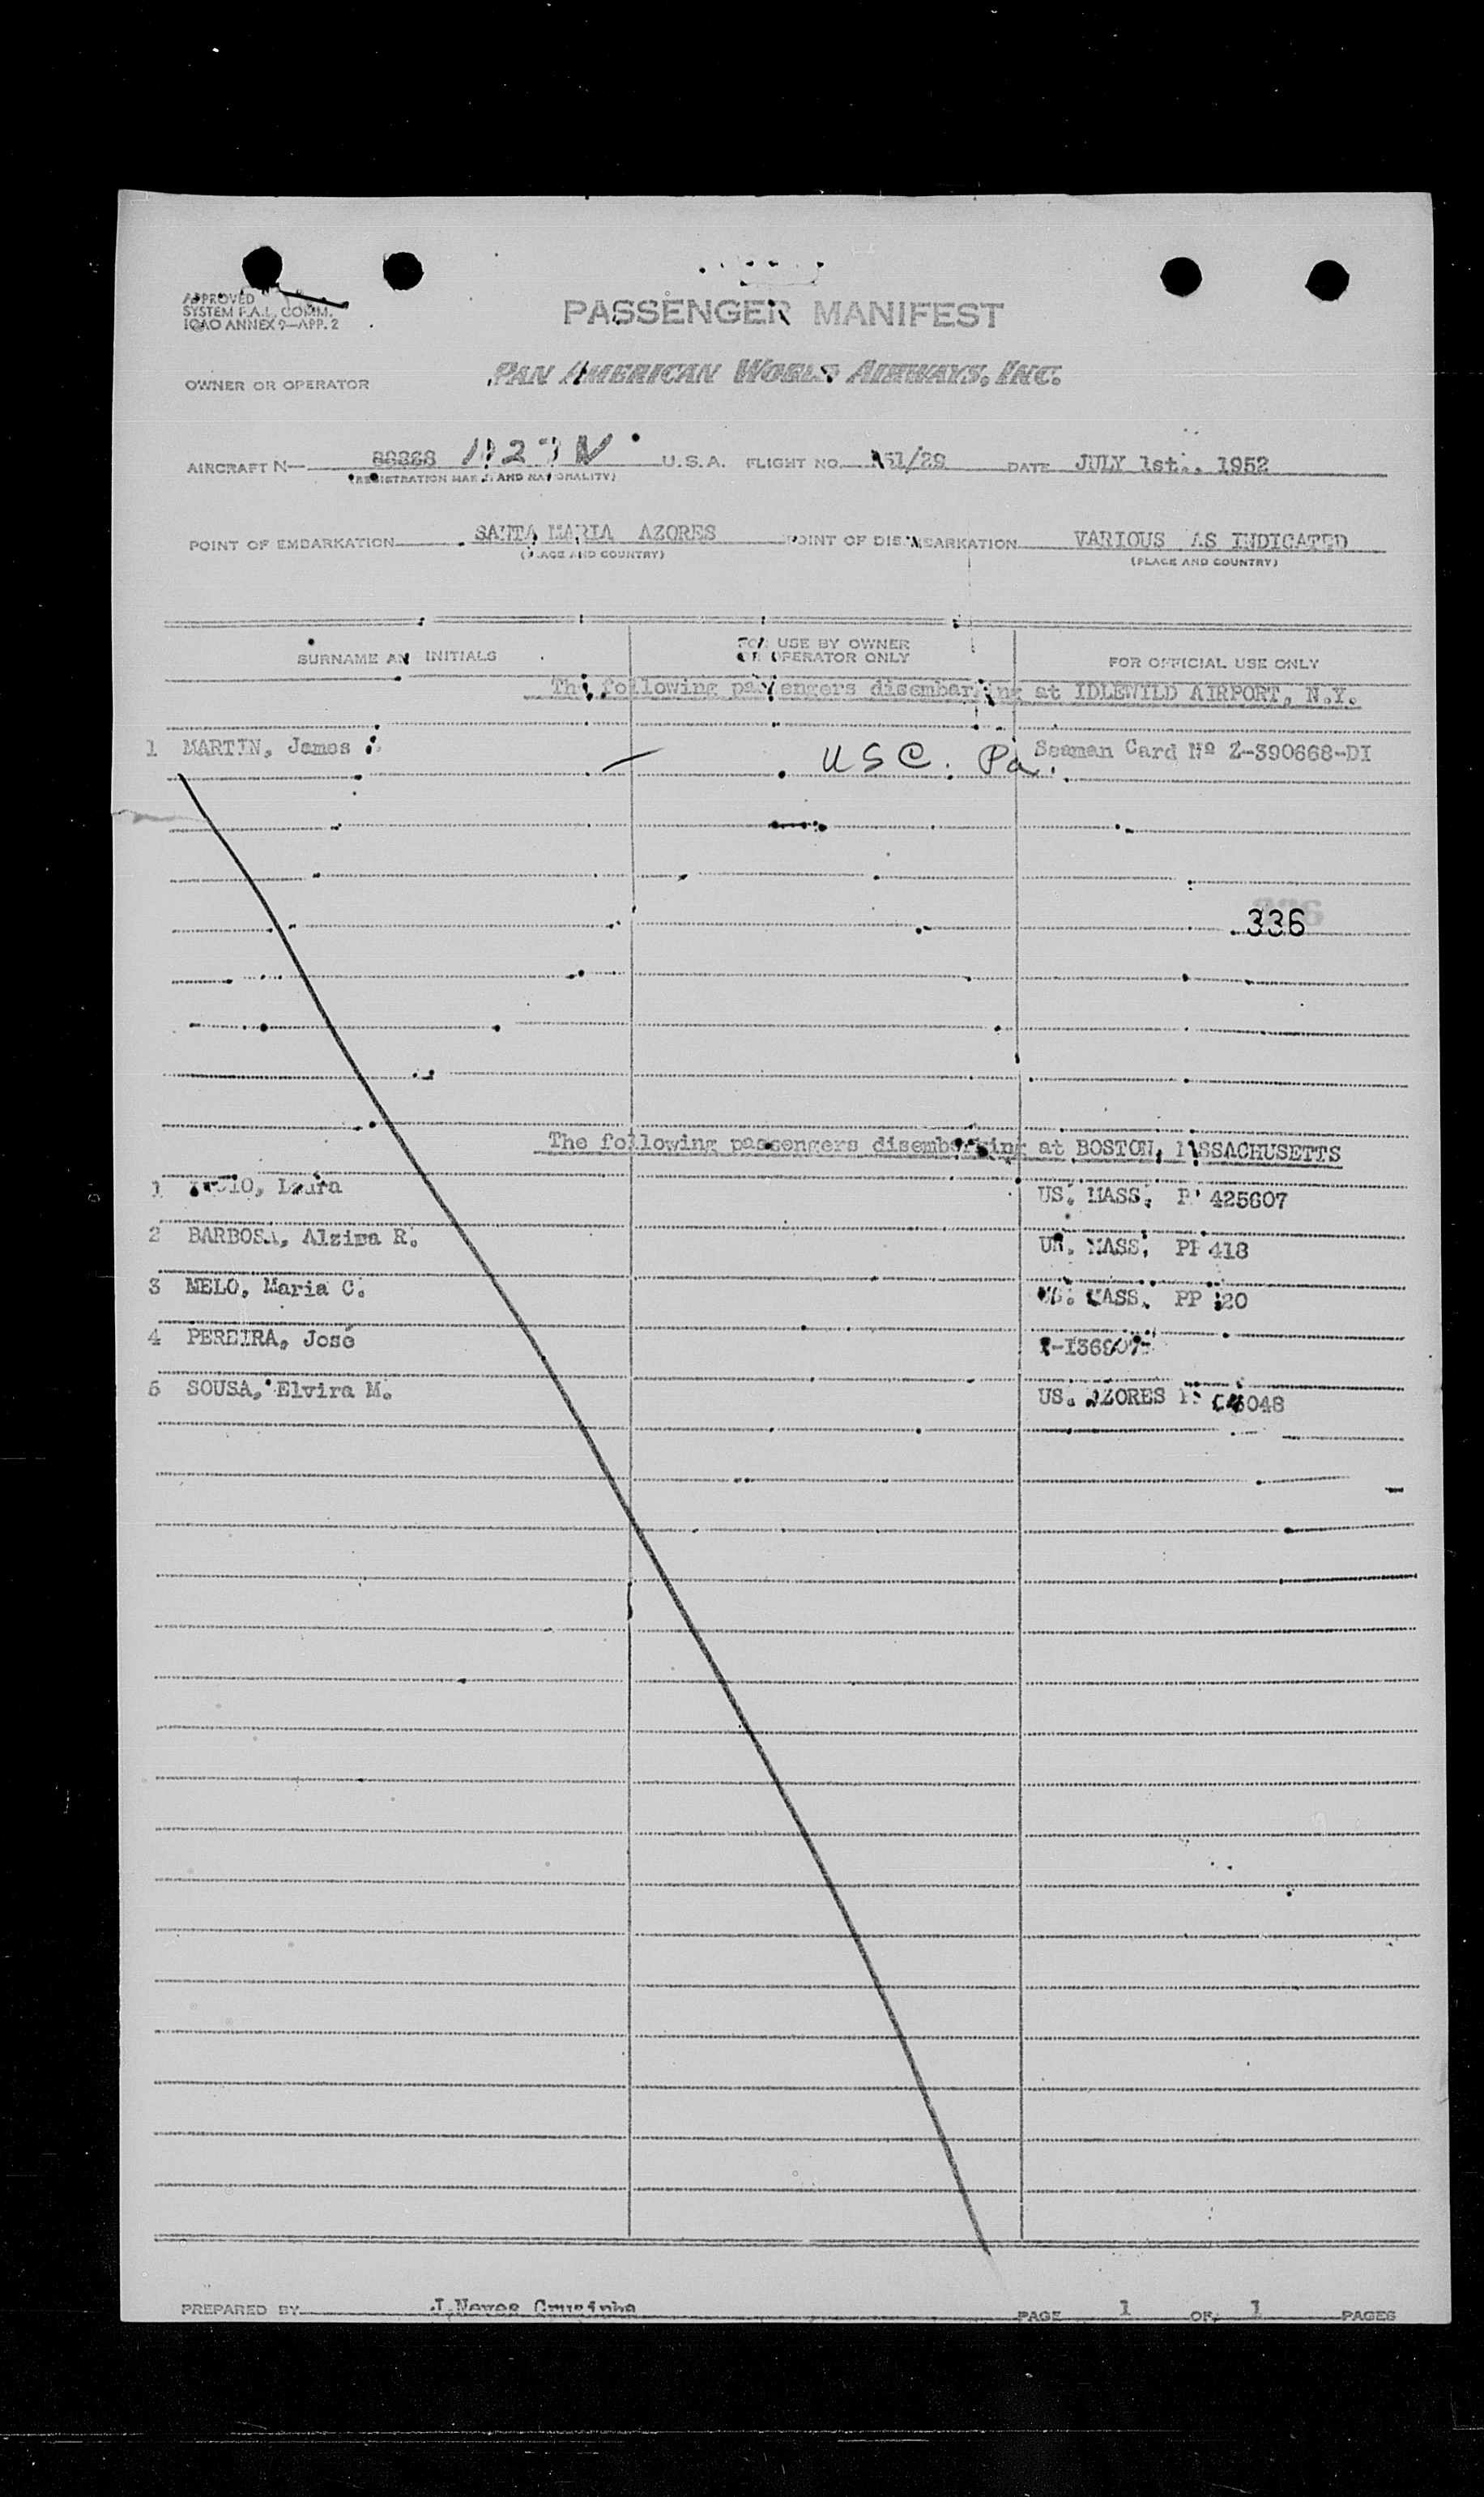 APPROVED
SYSTEM F.A.L. COMM.
ICAO ANNEX 9—APP. 2
PASSENGER MANIFEST
OWNER OR OPERATOR PAN AMERICAN WORLD AIRWAYS, INC.
AIRCRAFT N— U.S.A. FLIGHT NO. DATE JULY 1st., 1952
(REGISTRATION MARKS AND NATIONALITY)
POINT OF EMBARKATION SANTA MARIA AZORES POINT OF DISEMBARKATION VARIOUS AS INDICATED
(PLACE AND COUNTRY) (PLACE AND COUNTRY)
SURNAME AND INITIALS
FOR USE BY OWNER
OR OPERATOR ONLY
FOR OFFICIAL USE ONLY
The following passengers disembarking at IDLEWILD AIRPORT, N.Y.
1 MARTIN, James — USC. Pa. Seaman Card Nº Z-390668-DI
336
The following passengers disembarking at BOSTON, MASSACHUSETTS
1 Laura US. MASS. 425607
2 BARBOSA, Alzira R. US. MASS. PP 418
3 MELO, Maria C. US. MASS. PP
4 PEREIRA, José
5 SOUSA, Elvira M. US. AZORES
PREPARED BY J.Neves
PAGE 1 OF 1 PAGES